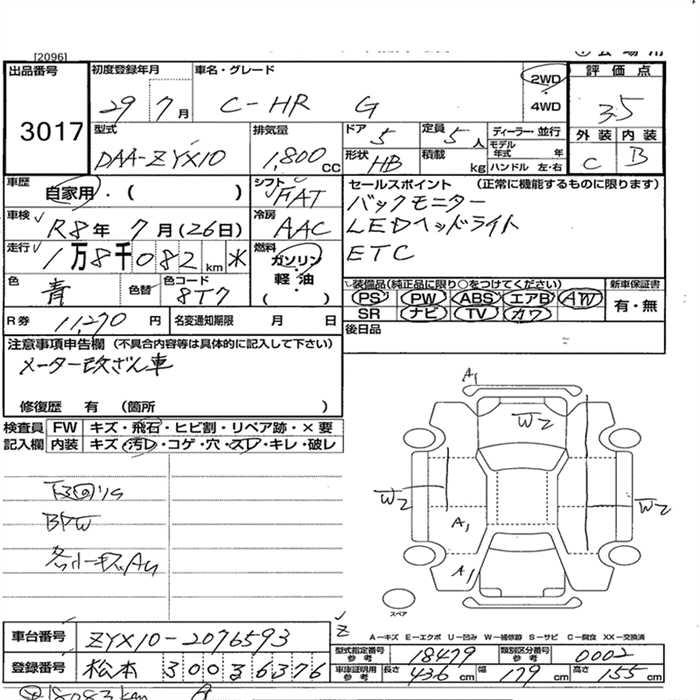 [2096]
出品番号 初度登録年月 車名・グレード 評価点
3017 29年7月 C-HR G 2WD 4WD 3.5
外装 内装
C B
型式 排気量 ドア 5 定員 5人 ディーラー・並行
DAA-ZYX10 1,800cc 形状 HB 積載 kg モデル年式 年 ハンドル 左・右
車歴 自家用・( ) シフト FAT セールスポイント (正常に機能するものに限ります)
バックモニター
LEDヘッドライト
ETC
車検 R8年7月(26日) 冷房 AAC
走行 1万8千082km 燃料 ガソリン・軽油 ( )
色 青 色替 色コード 8T7
装備品(純正品に限り○をつけてください) 新車保証書
PS PW ABS エアB AW 有・無
SR ナビ TV カワ
R券 11,270円 名変通知期限 月 日 後日品
注意事項申告欄 (不具合内容等は具体的に記入して下さい)
メーター改ざん車
修復歴 有 (箇所 )
検査員 FW キズ・飛石・ヒビ割・リペア跡・×要
記入欄 内装 キズ・汚レ・コゲ・穴・スレ・キレ・破レ
BPW
A1
W2
W2
W2
A1
A1
スペア
A−キズ E−エクボ U−凹み W−補修跡 S−サビ C−腐食 XX−交換済
車台番号 ZYX10-2076593
型式指定番号 参考 18479 類別区分番号 参考 0002
登録番号 松本 300 さ 6376
車庫証明用 参考 長さ 436cm 幅 179cm 高さ 155cm
18083km